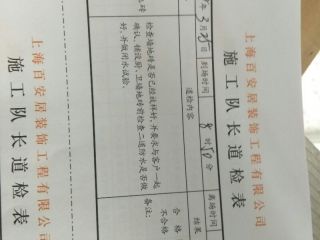 上海百安居装饰工程有限公司
施工队长道检表
年3月25日
到场时间
8时50分
离场时间
道检内容
结果
检查墙地砖是否已经选样好,并要求与客户一起
确认,铺设厨、卫墙地砖前检查二道防水是否做
好,并做闭水试验。
合格
不合格
备注:
上海百安居装饰工程有限公司
施工队长道检表